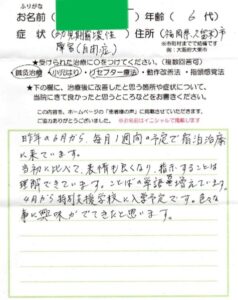 ふりがな
お名前 年齢(6代)
症状(幼児期 障害(自閉症)) 住所(福岡県久留米)市
※市町村までで結構です
例)大阪府大東市
★受けられた治療に○をつけてください。(複数回答可)
鍼灸治療・小児はり・リセプター療法・動作改善法・指頭感覚法
★下の欄に、治療後に改善したと思う箇所や症状について、
当院にきて良かったと思うところなどをお書きください。
ホームページへ「患者様の声」に掲載させていただきますので
ご協力ありがとうございました。★お名前はイニシャルで掲載します
昨年の6月から、毎月1週間の予定で宿泊治療
に来ています。
当初に比べて、表情も良くなり、指示することは
理解できています。ことばの単語も増えています。
4月から特別支援学校に入学予定です。色々な
事に興味がでてきたと思います。